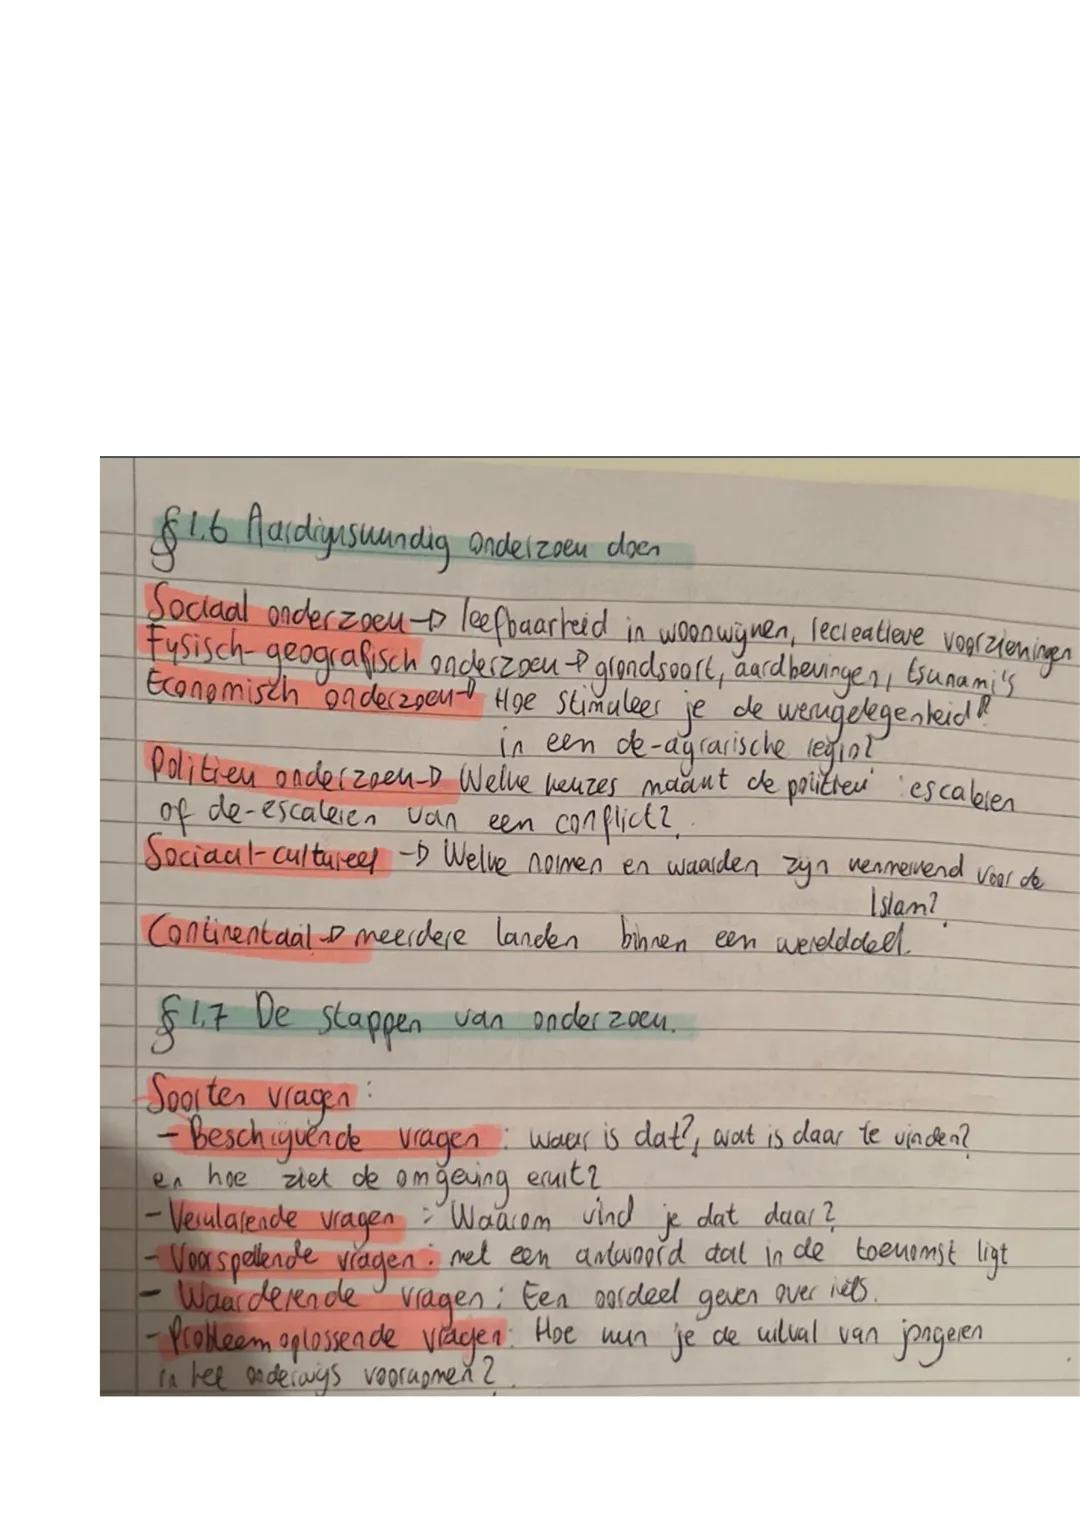 §1.6 Aardrijkskundig onderzoek doen
Sociaal onderzoek → leefbaarheid in woonwijken, recreatieve voorzieningen
Fysisch-geografisch onderzoek → grondsoort, aardbevingen, tsunami's
Economisch onderzoek → Hoe stimuleer je de werkgelegenheid
in een de-agrarische regio?
Politiek onderzoek → Welke keuzes maakt de politiek: escaleren
of de-escaleren van een conflict?
Sociaal-cultureel → Welke normen en waarden zijn kenmerkend voor de
Islam?
Continentaal → meerdere landen binnen een werelddeel.
§1.7 De stappen van onderzoek.
Soorten vragen:
- Beschrijvende vragen: waar is dat?, wat is daar te vinden?
en hoe ziet de omgeving eruit?
- Verklarende vragen: Waarom vind je dat daar?
- Voorspellende vragen: met een antwoord dat in de toekomst ligt
- Waarderende vragen: Een oordeel geven over iets.
- Probleemoplossende vragen: Hoe kun je de uitval van jongeren
in het onderwijs voorkomen?